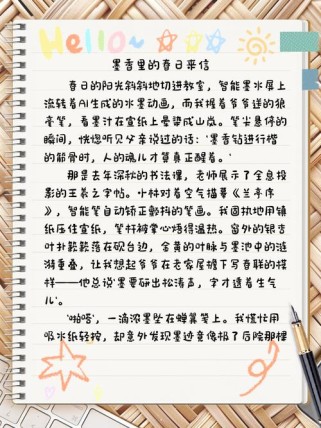 Hello~
墨香里的春日来信
春日的阳光斜斜地切进教室，智能墨水屏上
流转着AI生成的水墨动画，而我握着爷爷送的狼
毫笔，看墨汁在宣纸上晕染成山岚。笔尖悬停的
瞬间，恍惚听见父亲说过的话：'墨香钻进行楷
的筋骨时，人的魂儿才算真正醒着。'
那是去年深秋的书法课，老师展示了全息投
影的王羲之字帖。小林对着空气描摹《兰亭序
》，智能笔自动矫正颤抖的笔画。我固执地用镇
纸压住宣纸，笔杆被掌心焐得温热。窗外的银杏
叶扑簌簌落在砚台边，金黄的叶脉与墨池中的涟
漪重叠，让我想起爷爷在老家屋檐下写春联的模
样——他总说'墨要研出松涛声，字才透着生气
儿'。
'啪嗒'，一滴浓墨坠在蝉翼笺上。我慌忙用
吸水纸轻按，却意外发现墨迹竟像极了后院那棵